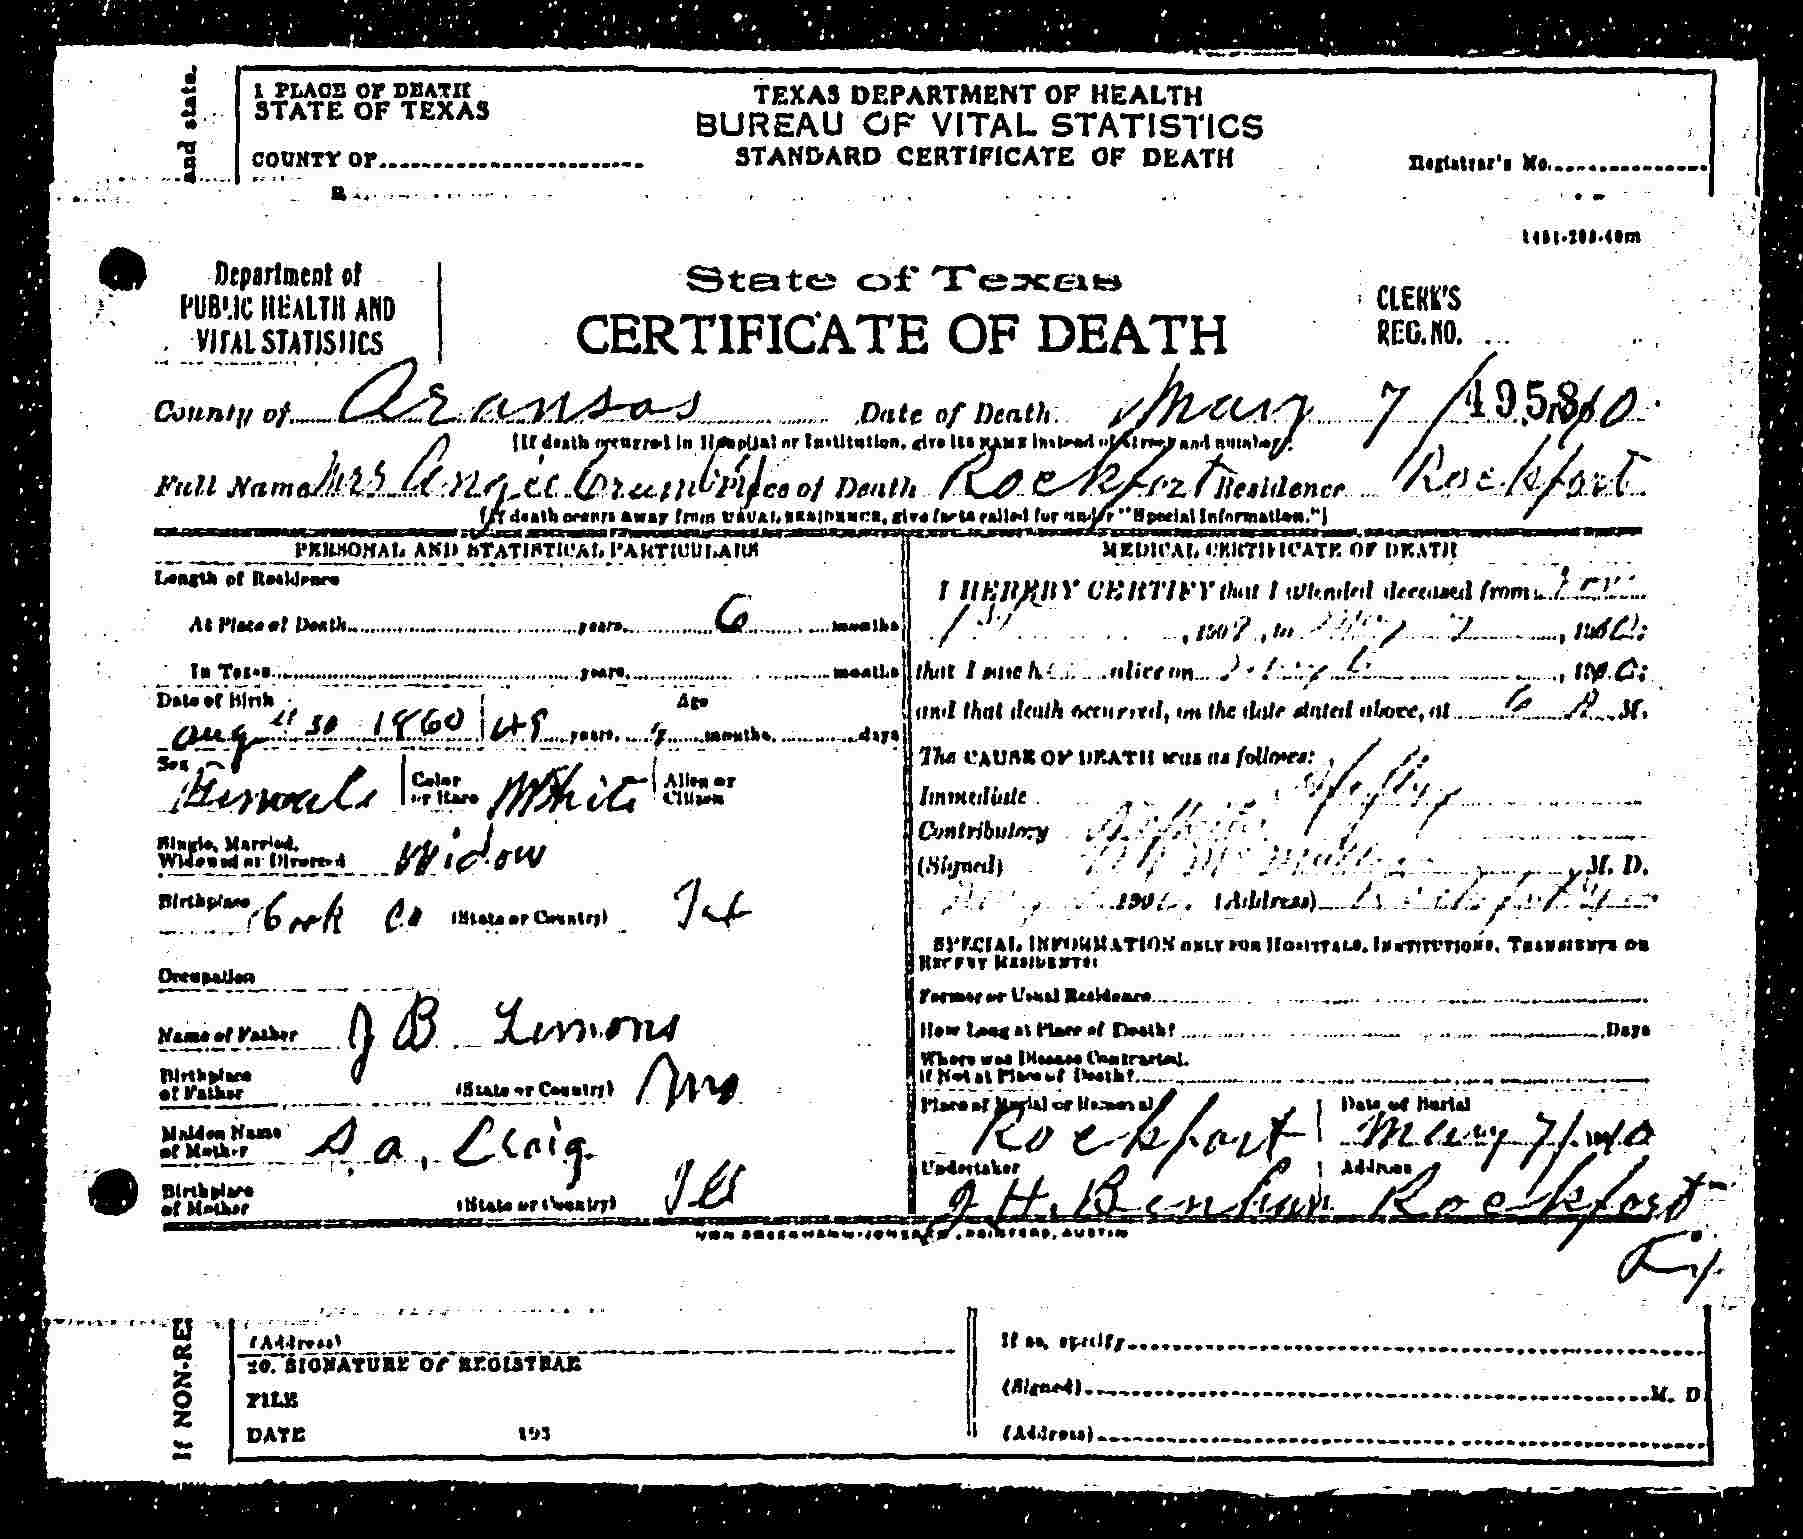 and state.
1 PLACE OF DEATH
STATE OF TEXAS
COUNTY OF
TEXAS DEPARTMENT OF HEALTH
BUREAU OF VITAL STATISTICS
STANDARD CERTIFICATE OF DEATH
Registrar's No.
1451-203-40m
Department of
PUBLIC HEALTH AND
VITAL STATISTICS
State of Texas
CERTIFICATE OF DEATH
CLERK'S
REG. NO.
County of Aransas Date of Death May 7 / 1958 10
(If death occurred in Hospital or Institution, give its NAME instead of street and number).
Full Name Mrs Angie Place of Death Rockport Residence Rockport
(If death occurs away from USUAL RESIDENCE, give facts called for under "Special Information.")
PERSONAL AND STATISTICAL PARTICULARS
Length of Residence
At Place of Death years 6 months
In Texas years months
Date of Birth Age
Aug 30 1860 49 years, months, days
Sex Female Color or Race White Alien or Citizen
Single, Married, Widowed or Divorced Widow
Birthplace Cook Co (State or Country) Tex
Occupation
Name of Father J B Limons
Birthplace of Father (State or Country) Mo
Maiden Name of Mother S. a. Craig
Birthplace of Mother (State or Country) Ill
MEDICAL CERTIFICATE OF DEATH
I HEREBY CERTIFY that I attended deceased from
1st , 190 , to May 7 , 19
that I saw h alive on , 19
and that death occurred, on the date stated above, at 6 A M.
The CAUSE OF DEATH was as follows:
Immediate
Contributory
(Signed) M. D.
190 (Address)
SPECIAL INFORMATION ONLY FOR HOSPITALS, INSTITUTIONS, TRANSIENTS OR
RECENT RESIDENTS:
Former or Usual Residence
How Long at Place of Death? Days
Where was Disease Contracted,
If Not at Place of Death?
Place of Burial or Removal Date of Burial
Rockport May 7/ 10
Undertaker Address
J H. Rockport
VON BOECKMANN-JONES CO., PRINTERS, AUSTIN
If NON-RE
(Address)
20. SIGNATURE OF REGISTRAR
FILE
DATE 193
If so, specify
(Signed) M. D
(Address)